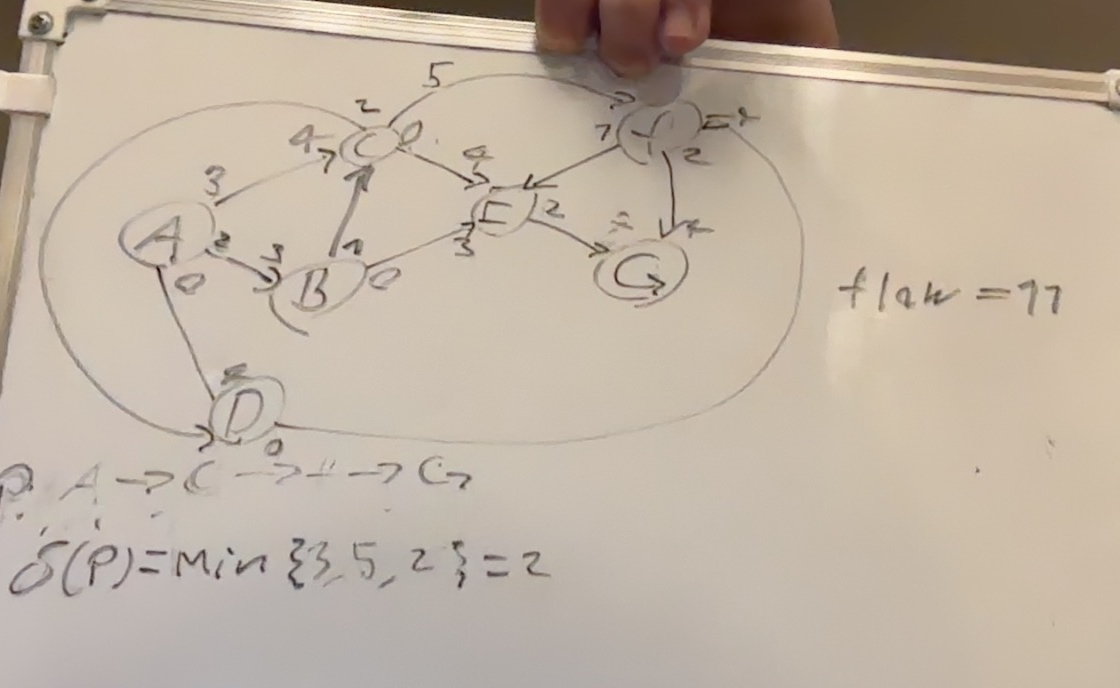 5
2
4 C 0
7 f
2
3
A 2 3
0
B 0
3
E 2
G
D
0
flow = 11
P: A → C → f → G
δ(P) = Min {3, 5, 2} = 2